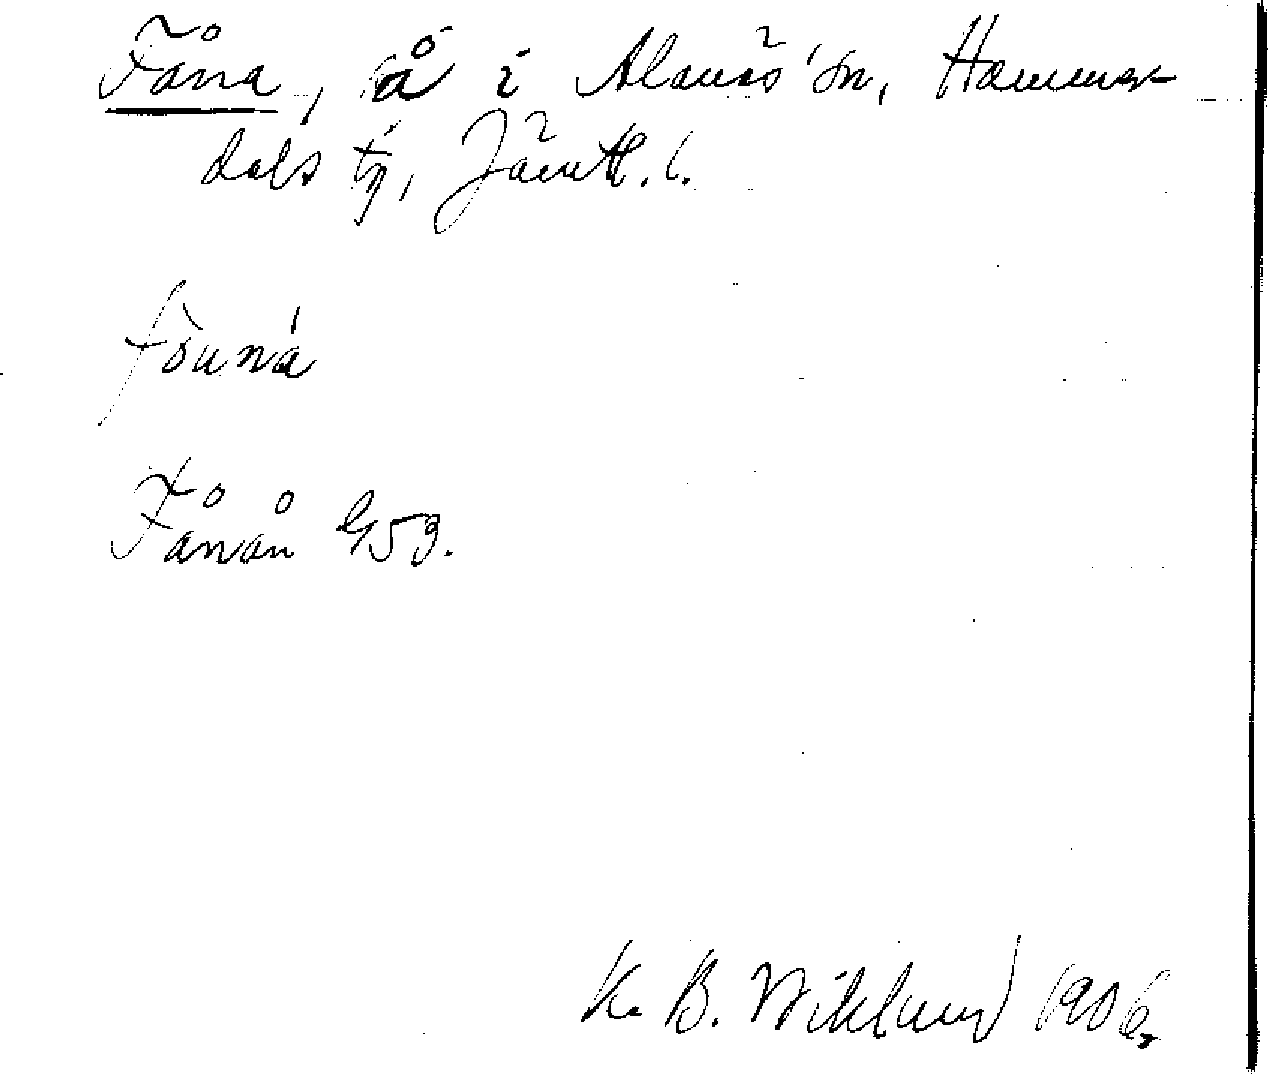 Fåna, å i Alanäs sn, Hammer-
dals tg, Jämtl. l.
fòuná
Fånån G53.
K. B. Wiklund 1906.